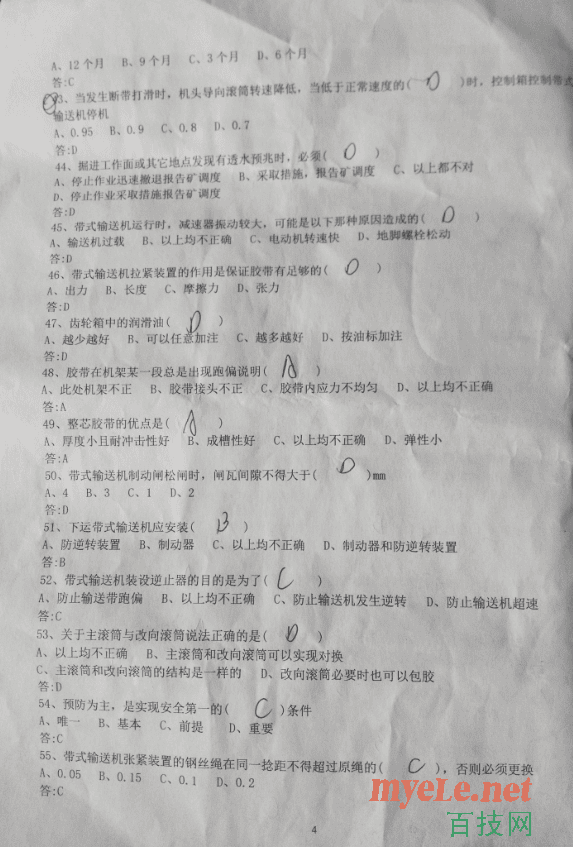 A、12个月 B、9个月 C、3个月 D、6个月
答:C
43、当发生断带打滑时，机头导向滚筒转速降低，当低于正常速度的( D )时，控制箱控制带式
输送机停机
A、0.95 B、0.9 C、0.8 D、0.7
答:D
44、掘进工作面或其它地点发现有透水预兆时，必须( D )
A、停止作业迅速撤退报告矿调度 B、采取措施，报告矿调度 C、以上都不对
D、停止作业采取措施报告矿调度
答:D
45、带式输送机运行时，减速器振动较大，可能是以下那种原因造成的( D )
A、输送机过载 B、以上均不正确 C、电动机转速快 D、地脚螺栓松动
答:D
46、带式输送机拉紧装置的作用是保证胶带有足够的( D )
A、出力 B、长度 C、摩擦力 D、张力
答:D
47、齿轮箱中的润滑油( D )
A、越少越好 B、可以任意加注 C、越多越好 D、按油标加注
答:D
48、胶带在机架某一段总是出现跑偏说明( A )
A、此处机架不正 B、胶带接头不正 C、胶带内应力不均匀 D、以上均不正确
答:A
49、整芯胶带的优点是( A )
A、厚度小且耐冲击性好 B、成槽性好 C、以上均不正确 D、弹性小
答:A
50、带式输送机制动闸松闸时，闸瓦间隙不得大于( D )mm
A、4 B、3 C、1 D、2
答:D
51、下运带式输送机应安装( B )
A、防逆转装置 B、制动器 C、以上均不正确 D、制动器和防逆转装置
答:B
52、带式输送机装设逆止器的目的是为了( C )
A、防止输送带跑偏 B、以上均不正确 C、防止输送机发生逆转 D、防止输送机超速
答:C
53、关于主滚筒与改向滚筒说法正确的是( D )
A、以上均不正确 B、主滚筒和改向滚筒可以实现对换
C、主滚筒和改向滚筒的结构是一样的 D、改向滚筒必要时也可以包胶
答:D
54、预防为主，是实现安全第一的( C )条件
A、唯一 B、基本 C、前提 D、重要
答:C
55、带式输送机张紧装置的钢丝绳在同一捻距不得超过原绳的( C )，否则必须更换
A、0.05 B、0.15 C、0.1 D、0.2
答:C
myeLe.net
百技网
4